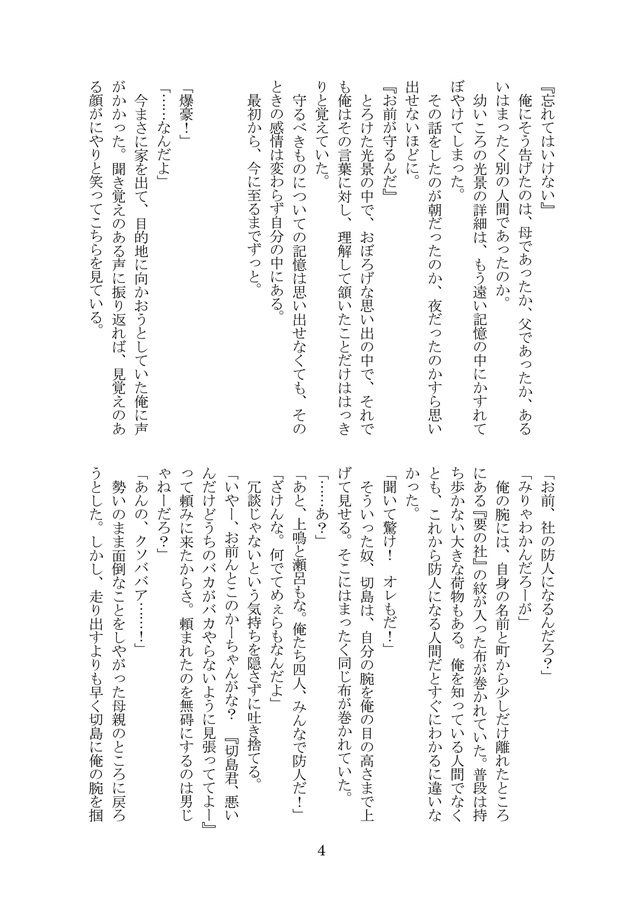 『忘れてはいけない』
　俺にそう告げたのは、母であったか、父であったか、ある
いはまったく別の人間であったのか。
　幼いころの光景の詳細は、もう遠い記憶の中にかすれて
ぼやけてしまった。
　その話をしたのが朝だったのか、夜だったのかすら思い
出せないほどに。
『お前が守るんだ』
　とろけた光景の中で、おぼろげな思い出の中で、それで
も俺はその言葉に対し、理解して頷いたことだけははっき
りと覚えていた。
　守るべきものについての記憶は思い出せなくても、その
ときの感情は変わらず自分の中にある。
　最初から、今に至るまでずっと。
「爆豪！」
「……なんだよ」
　今まさに家を出て、目的地に向かおうとしていた俺に声
がかかった。聞き覚えのある声に振り返れば、見覚えのあ
る顔がにやりと笑ってこちらを見ている。
「お前、社の防人になるんだろ？」
「みりゃわかんだろーが」
　俺の腕には、自身の名前と町から少しだけ離れたところ
にある『要の社』の紋が入った布が巻かれていた。普段は持
ち歩かない大きな荷物もある。俺を知っている人間でなく
とも、これから防人になる人間だとすぐにわかるに違いな
かった。
「聞いて驚け！　オレもだ！」
　そういった奴、切島は、自分の腕を俺の目の高さまで上
げて見せる。そこにはまったく同じ布が巻かれていた。
「……あ？」
「あと、上鳴と瀬呂もな。俺たち四人、みんなで防人だ！」
「ざけんな。何でてめぇらもなんだよ」
　冗談じゃないという気持ちを隠さずに吐き捨てる。
「いやー、お前んとこのかーちゃんがな？　『切島君、悪い
んだけどうちのバカがバカやらないように見張っててよー』
って頼みに来たからさ。頼まれたのを無碍にするのは男じ
ゃねーだろ？」
「あんの、クソババア……！」
　勢いのまま面倒なことをしやがった母親のところに戻ろ
うとした。しかし、走り出すよりも早く切島に俺の腕を掴
4